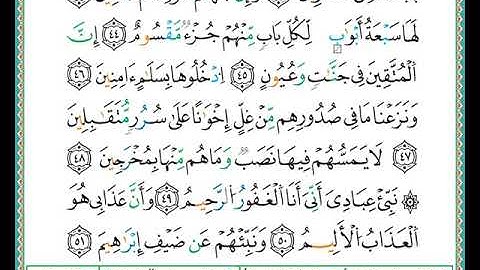 لَهَا سَبْعَةُ أَبْوَابٍ لِكُلِّ بَابٍ مِنْهُمْ جُزْءٌ مَقْسُومٌ ٤٤ إِنَّ
الْمُتَّقِينَ فِي جَنَّتٍ وَعُيُونٍ ٤٥ اِدْخُلُوهَا بِسَلَمٍ امِنِينَ ٤٦
وَنَزَعْنَا مَا فِي صُدُورِهِم مِنْ غِلٍّ إِخْوَنًا عَلَى سُرُرٍ مُتَقَبِلِينَ
٤٧ لَا يَمَسُّهُمْ فِيهَا نَصَبٌ وَمَا هُم مِنْهَا بِمُخْرَجِينَ ٤٨
نَبِّئْ عِبَادِي أَنِّي أَنَا الْغَفُورُ الرَّحِيمُ ٤٩ وَأَنَّ عَذَابِي هُوَ
الْعَذَابُ الْأَلِيمُ ٥٠ وَنَبِّئْهُمْ عَن ضَيْفِ إِبْرَهِيمَ ٥١